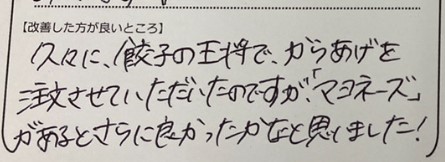 【改善した方が良いところ】
久々に、餃子の王将で、からあげを
注文させていただいたのですが、「マヨネーズ」
があるとさらに良かったかなと思いました!